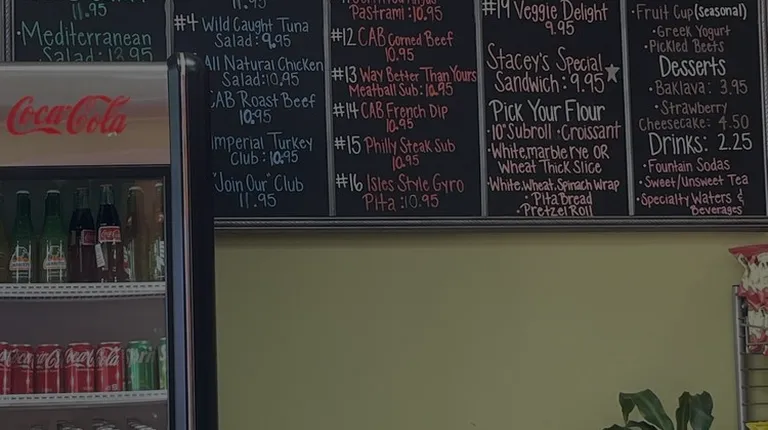 11.95
Mediterranean
Salad: 13.95
#4 Wild Caught Tuna
Salad: 9.95
All Natural Chicken
Salad: 10.95
CAB Roast Beef
10.95
Imperial Turkey
Club: 10.95
"Join Our" Club
11.95
Pastrami: 10.95
#12 CAB Corned Beef
10.95
#13 Way Better Than Yours
Meatball Sub: 10.95
#14 CAB French Dip
10.95
#15 Philly Steak Sub
10.95
#16 Isles Style Gyro
Pita: 10.95
#19 Veggie Delight
9.95
Stacey's Special
Sandwich: 9.95
Pick Your Flour
• 10" Subroll • Croissant
• White, marble rye OR
Wheat Thick Slice
• White, Wheat, Spinach Wrap
• Pita Bread
• Pretzel Roll
• Fruit Cup (seasonal)
• Greek Yogurt
• Pickled Beets
Desserts
• Baklava: 3.95
• Strawberry
Cheesecake: 4.50
Drinks: 2.25
• Fountain Sodas
• Sweet/Unsweet Tea
• Specialty Waters &
Beverages
Coca-Cola
Coca-Cola